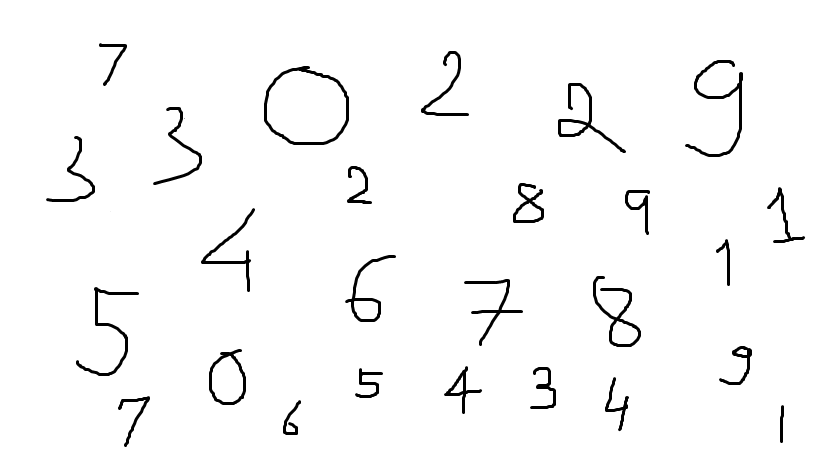 7 3 3 0 2 2 9
2 8 9 1
4 6 7 8 1
5 0 5 4 3 4 9
7 6 1